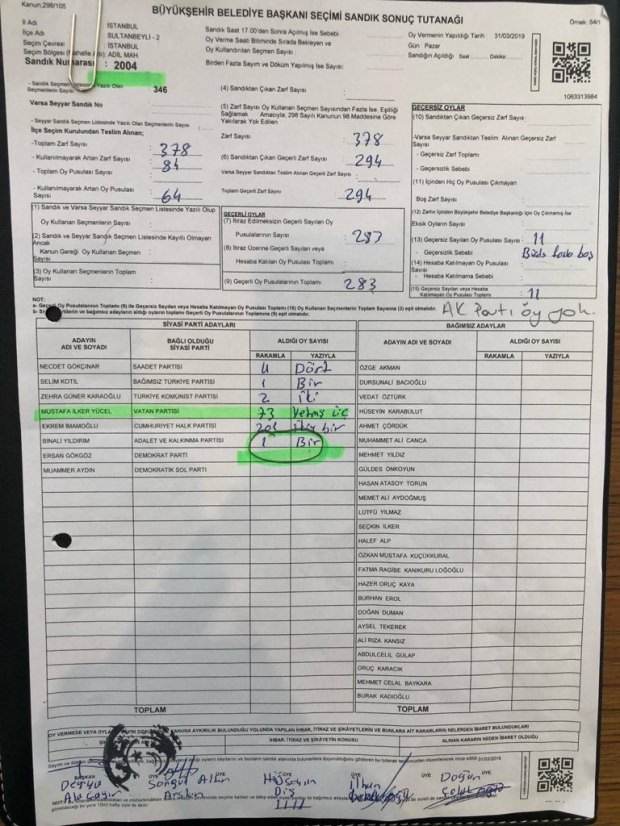 Kanun,298/105
BÜYÜKŞEHİR BELEDİYE BAŞKANI SEÇİMİ SANDIK SONUÇ TUTANAĞI
Örnek: 54/1
İl Adı İSTANBUL
İlçe Adı SULTANBEYLİ - 2
Seçim Çevresi İSTANBUL
Seçim Bölgesi (Mahalle Adı) ADİL MAH
Sandık Numarası : 2004
Sandık Saat 17.00'den Sonra Açılmış İse Sebebi
Oy Verme Saati Bitiminde Sırada Bekleyen ve
Oy Kullandırılan Seçmen Sayısı
Birden Fazla Sayım ve Döküm Yapılmış İse Sayısı:
Oy Vermenin Yapıldığı Tarih 31/03/2019
Gün Pazar
Sandığın Açıldığı Saat Dakika:
1063313984
346
Varsa Seyyar Sandık No
- Seyyar Sandık Seçmen Listesinde Yazılı Olan Seçmenlerin Sayısı
İlçe Seçim Kurulundan Teslim Alınan;
-Toplam Zarf Sayısı 378
- Kullanılmayarak Artan Zarf Sayısı 84
-Toplam Oy Pusulası Sayısı
- Kullanılmayarak Artan Oy Pusulası Sayısı 64
(4) Sandıktan Çıkan Zarf Sayısı
(5) Zarf Sayısı Oy Kullanan Seçmen Sayısından Fazla İse, Eşitliği
Sağlamak Amacıyla: 298 Sayılı Kanunun 98 Maddesine Göre
Yakılarak Yok Edilen
Zarf Sayısı 378
(6) Sandıktan Çıkan Geçerli Zarf Sayısı 294
Varsa Seyyar Sandıktan Teslim Alınan Geçerli Zarf Sayısı
Toplam Geçerli Zarf Sayısı 294
GEÇERSİZ OYLAR
(10) Sandıktan Çıkan Geçersiz Zarf Sayısı
-Varsa Seyyar Sandıktan Teslim Alınan Geçersiz Zarf
Sayısı
- Geçersiz Zarf Toplamı
- Geçersizlik Sebebi
(11) İçinden Hiç Oy Pusulası Çıkmayan
Boş Zarf Sayısı
(12) Zarfın İçinden Büyükşehir Belediye Başkanlığı İçin Oy Çıkmamış İse
Eksik Oyların Sayısı
(13) Geçersiz Sayılan Oy Pusulası Sayısı 11
- Geçersizlik Sebebi
(14) Hesaba Katılmayan Oy Pusulası Sayısı
- Hesaba Katılmama Sebebi
(15) Geçersiz Sayılan veya Hesaba
Katılmayan Oy Pusulası Toplamı 11
1) Sandık ve Varsa Seyyar Sandık Seçmen Listesinde Yazılı Olup
Oy Kullanan Seçmenlerin Sayısı
(2) Sandık ve Seyyar Sandık Seçmen Listesinde Kayıtlı Olmayan
Ancak
Kanun Gereği Oy Kullanan Seçmen Sayısı
(3) Oy Kullanan Seçmenlerin Toplam
Sayısı
GEÇERLİ OYLAR
(7) İtiraz Edilmeksizin Geçerli Sayılan Oy
Pusulalarının Sayısı
(8) İtiraz Üzerine Geçerli Sayılan veya
Hesaba Katılan Oy Pusulası Toplamı
(9) Geçerli Oy Pusulası Toplamı 283
NOT:
a- Geçerli Oy Pusulalarının Toplamı (9) ile Geçersiz Sayılan veya Hesaba Katılmayan Oy Pusulası Toplamı (15) Oy Kullanan Seçmenlerin Toplam Sayısına (3) eşit olmalıdır.
AK Parti oy yok.
SİYASİ PARTİ ADAYLARI
BAĞIMSIZ ADAYLAR
ADAYIN ADI VE SOYADI BAĞLI OLDUĞU SİYASİ PARTİ ALDIĞI OY SAYISI RAKAMLA YAZIYLA
ADAYIN ADI VE SOYADI ALDIĞI OY SAYISI RAKAMLA YAZIYLA
NECDET GÖKÇINAR SAADET PARTİSİ 4 Dört
SELİM KOTİL BAĞIMSIZ TÜRKİYE PARTİSİ 1 Bir
ZEHRA GÜNER KARAOĞLU TÜRKİYE KOMÜNİST PARTİSİ 2 İki
MUSTAFA İLKER YÜCEL VATAN PARTİSİ 73 Yetmiş üç
EKREM İMAMOĞLU CUMHURİYET HALK PARTİSİ 201
BİNALİ YILDIRIM ADALET VE KALKINMA PARTİSİ 1 Bir
ERSAN GÖKGÖZ DEMOKRAT PARTİ
MUAMMER AYDIN DEMOKRATİK SOL PARTİ
ÖZGE AKMAN
DURSUNALİ BACIOĞLU
VEDAT ÖZTÜRK
HÜSEYİN KARABULUT
AHMET ÇÖRDÜK
MUHAMMET ALİ CANCA
MEHMET YILDIZ
GÜLDES ÖNKOYUN
HASAN ATASOY TORUN
MEMET ALİ AYDOĞMUŞ
LÜTFÜ YILMAZ
SEÇKİN İLKER
HALEF ALP
ÖZKAN MUSTAFA KÜÇÜKKURAL
FATMA RAGİBE KANIKURU LOĞOĞLU
HAZER ORUÇ KAYA
BURHAN EROL
DOĞAN DUMAN
AYSEL TEKEREK
ALİ RIZA KANSIZ
ABDULCELİL GÜLAP
ORUÇ KARACIK
MEHMET CELAL BAYKARA
BURAK KADIOĞLU
TOPLAM
TOPLAM
İHBAR, İTİRAZ VE ŞİKAYETİN KONUSU
ALINAN KARARIN NEDEN İBARET OLDUĞU
BAŞKAN ÜYE ÜYE ÜYE ÜYE
Derya Songül Altun Hüseyin İlhan Doğun
Arslan Diş